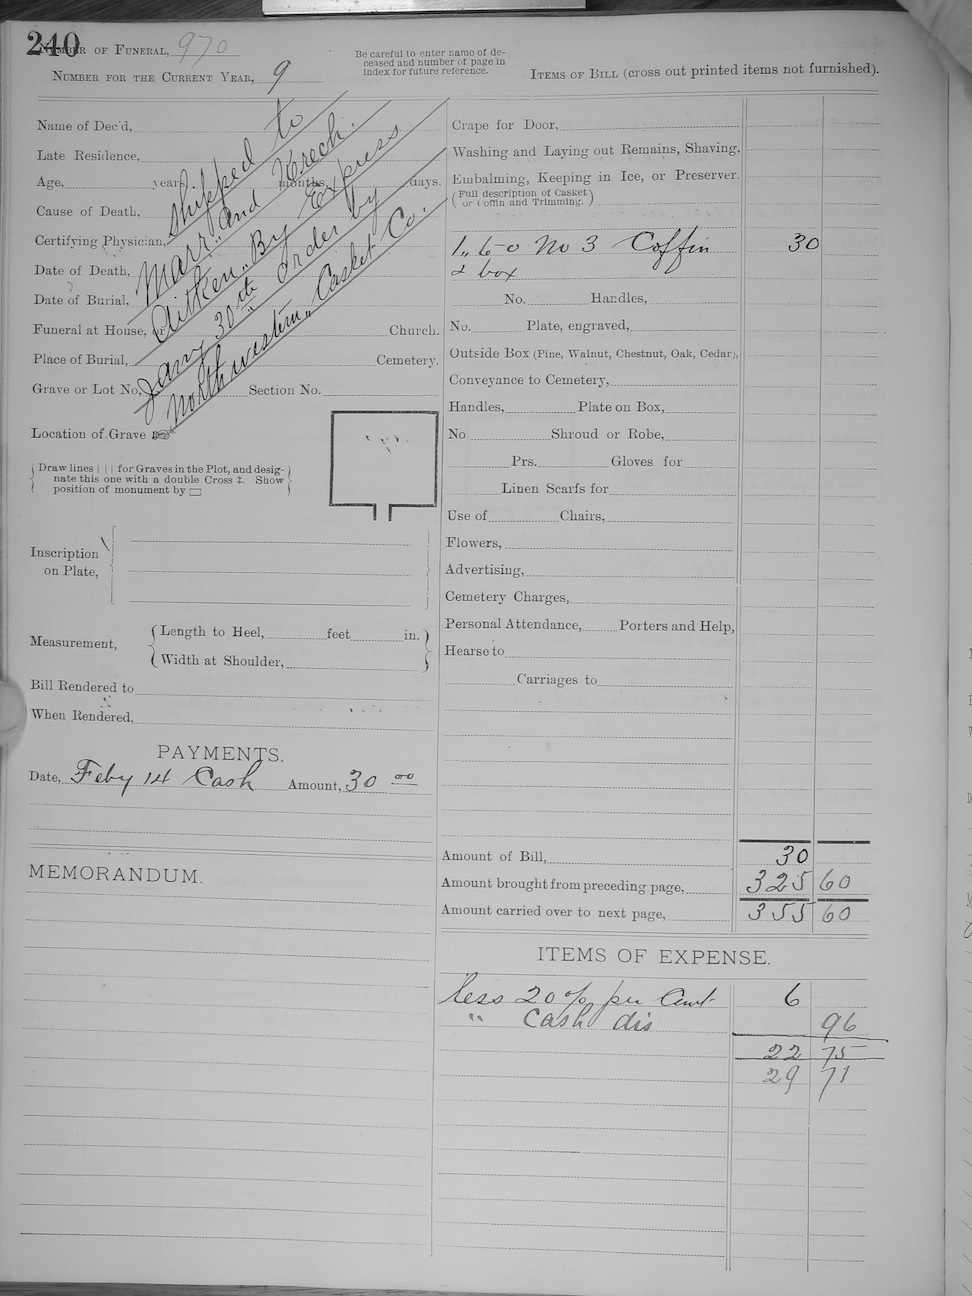 240
Number of Funeral, 970
Number for the Current Year, 9
Be careful to enter name of de-
ceased and number of page in
index for future reference.
Items of Bill (cross out printed items not furnished).
Name of Dec'd,
Late Residence,
Age, years, months, days.
Cause of Death,
Certifying Physician,
Date of Death,
Date of Burial,
Funeral at House, or Church.
Place of Burial, Cemetery.
Grave or Lot No, Section No.
Shipped to
Marr" and Krech.
Aitken" By Express
Jany 30th order by
Northwestern" Casket Co.
Location of Grave
Draw lines | | | for Graves in the Plot, and desig-
nate this one with a double Cross ‡. Show
position of monument by
Inscription
on Plate,
Measurement,
Length to Heel, feet in.
Width at Shoulder,
Bill Rendered to
When Rendered,
PAYMENTS.
Date, Feby 14 Cash Amount, 30 00
MEMORANDUM.
Crape for Door,
Washing and Laying out Remains, Shaving,
Embalming, Keeping in Ice, or Preserver.
(Full description of Casket
or Coffin and Trimming.)
1,, 6-0 No 3 Coffin 30
& box
No. Handles,
No. Plate, engraved,
Outside Box (Pine, Walnut, Chestnut, Oak, Cedar),
Conveyance to Cemetery,
Handles, Plate on Box,
No Shroud or Robe,
Prs. Gloves for
Linen Scarfs for
Use of Chairs,
Flowers,
Advertising,
Cemetery Charges,
Personal Attendance, Porters and Help,
Hearse to
Carriages to
Amount of Bill, 30
Amount brought from preceding page, 325 60
Amount carried over to next page, 355 60
ITEMS OF EXPENSE.
less 20% per Cent 6
" Cash dis 96
22 75
29 71